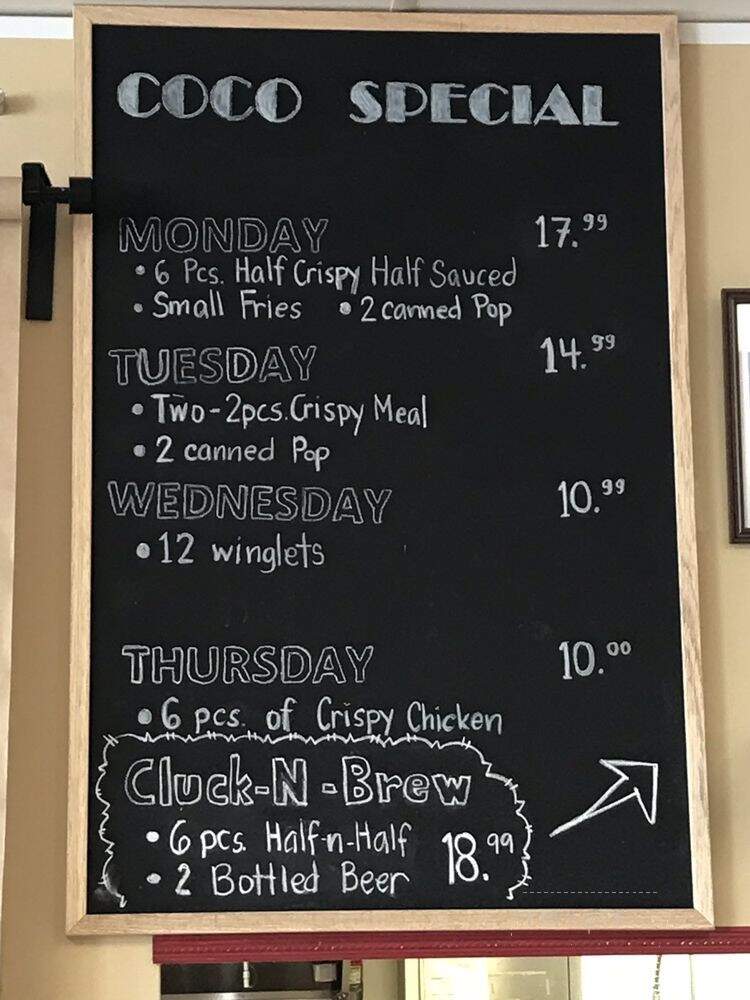 COCO SPECIAL
MONDAY 17.99
• 6 Pcs. Half Crispy Half Sauced
• Small Fries • 2 canned Pop
TUESDAY 14.99
• Two-2pcs. Crispy Meal
• 2 canned Pop
WEDNESDAY 10.99
• 12 winglets
THURSDAY 10.00
• 6 pcs. of Crispy Chicken
Cluck-N-Brew
• 6 pcs. Half-n-Half 18.99
• 2 Bottled Beer